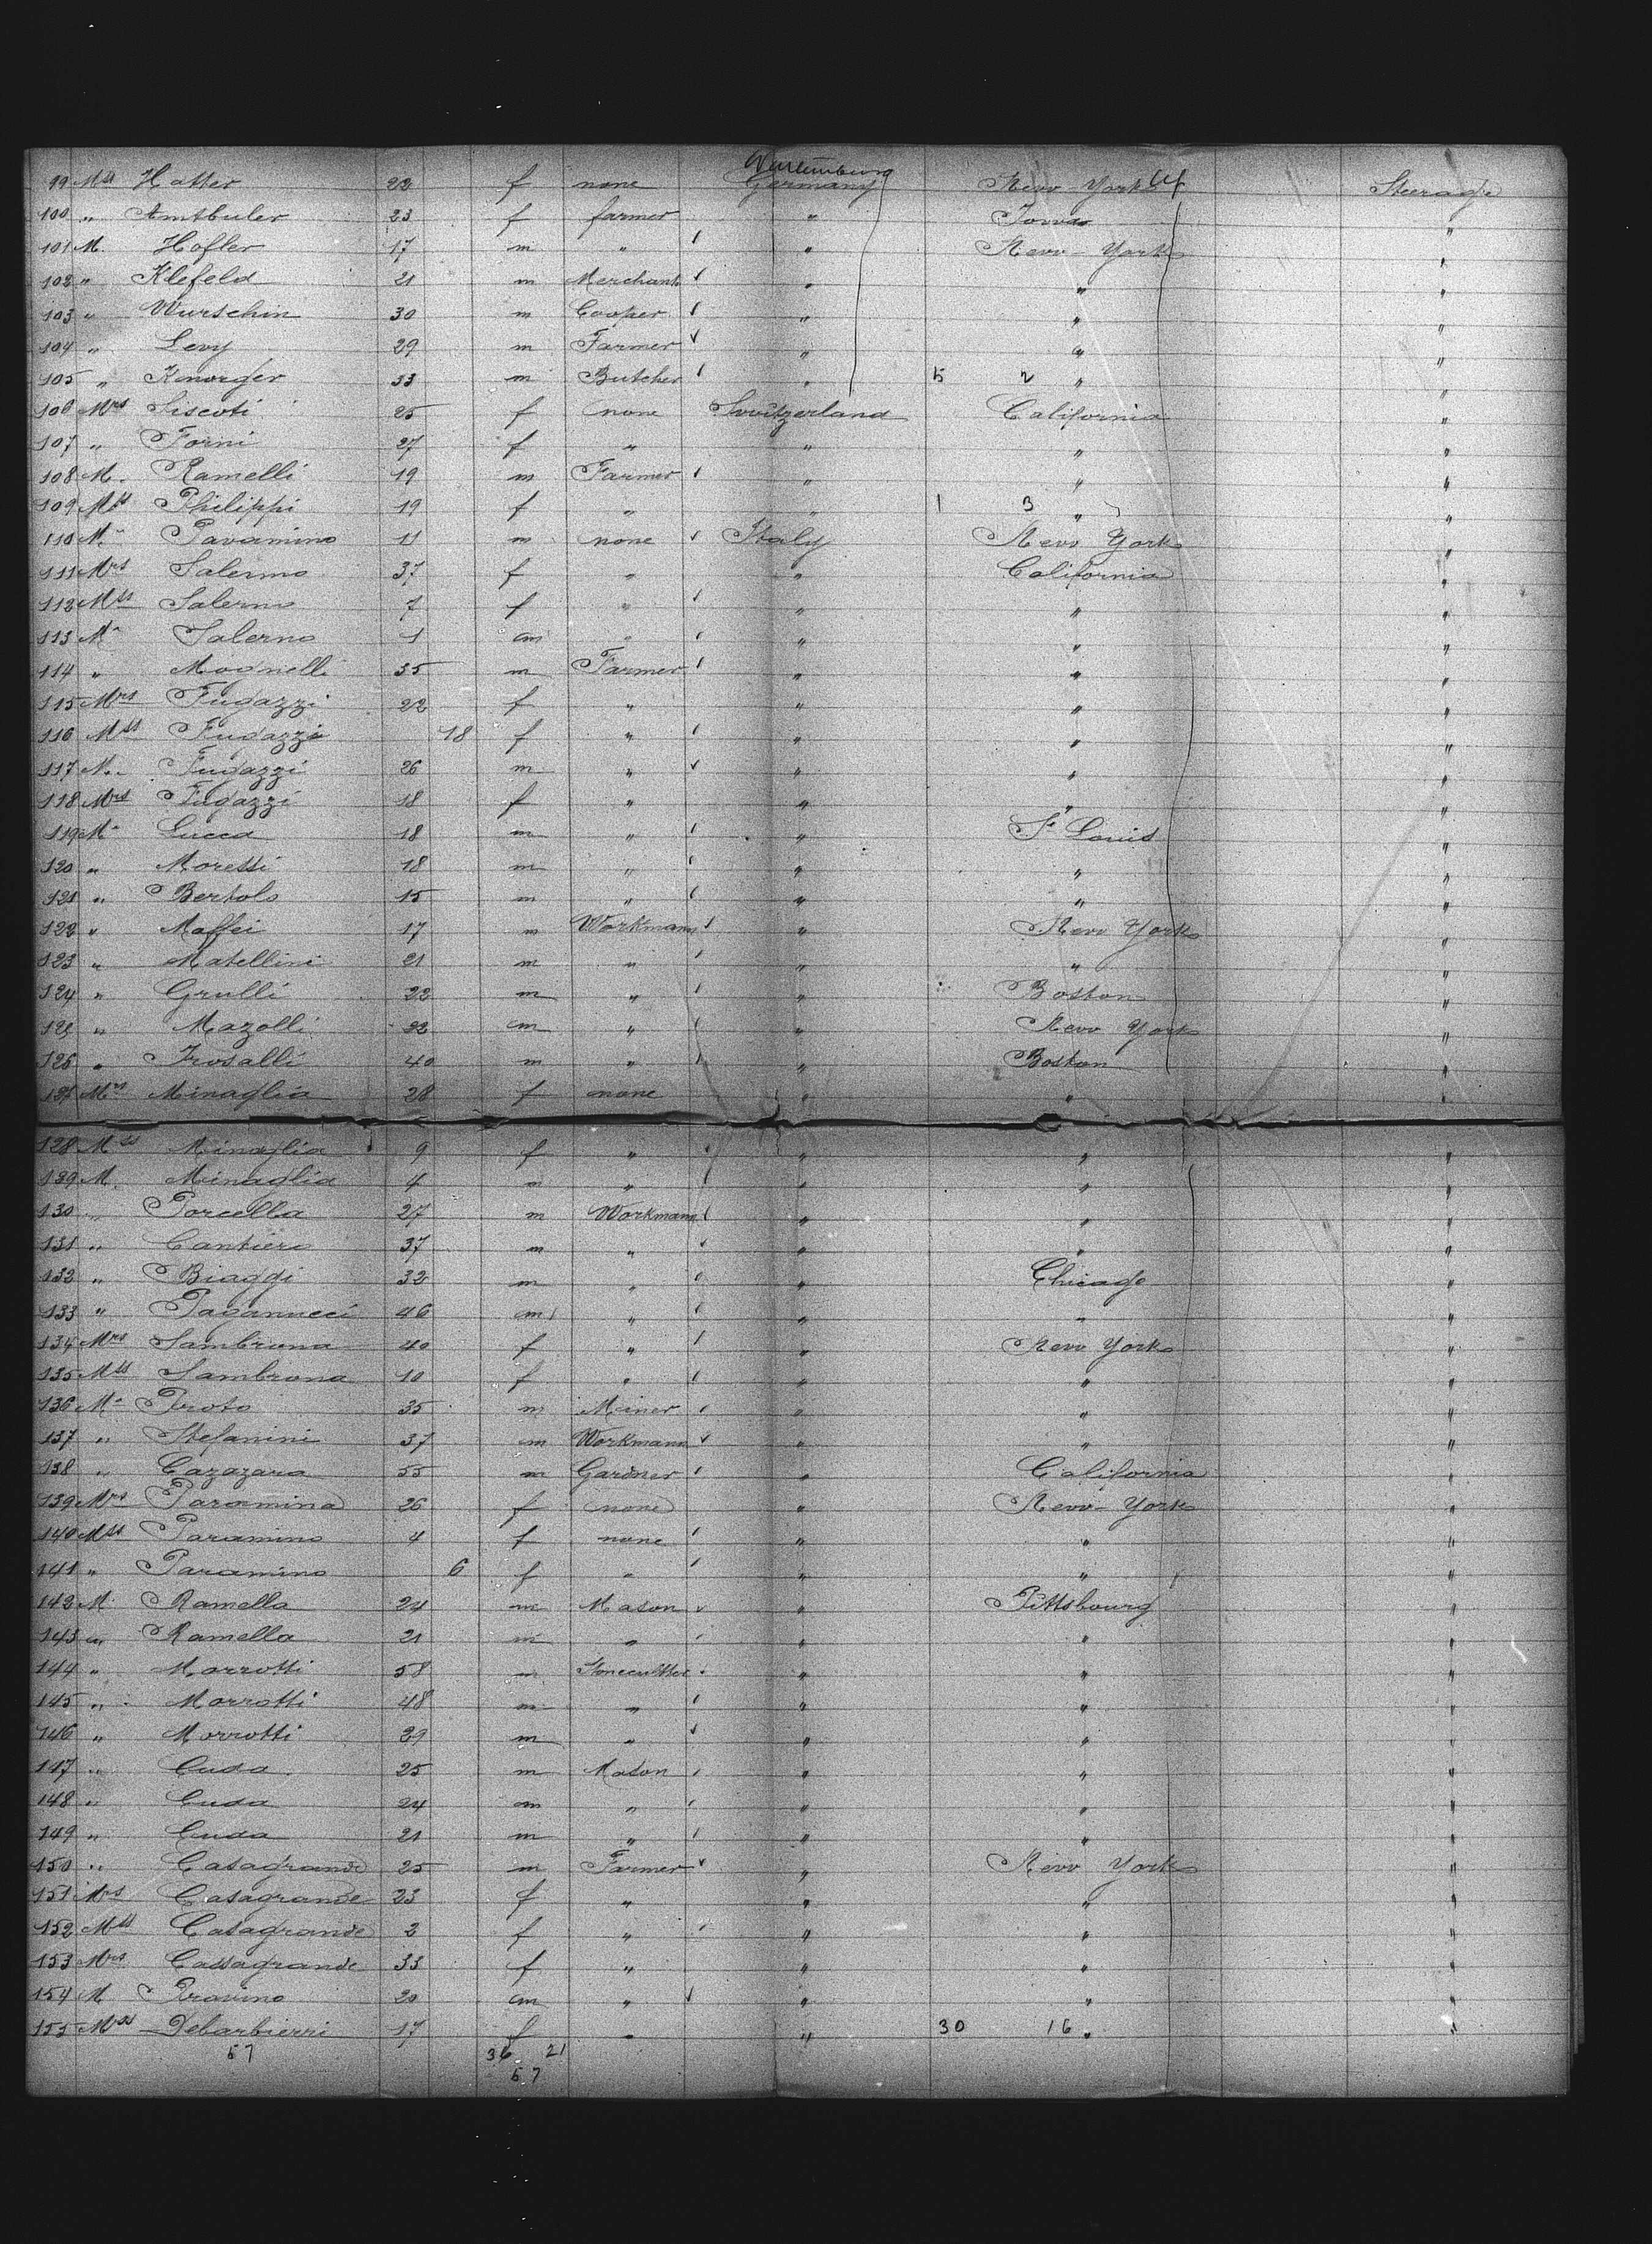 Wurtemburg
99 Mss Hatter 22 f none Germany New York Steerage
100 " Amtbuler 23 f farmer " Iowa "
101 M. Hofler 17 m " " New York "
102 " Klefeld 21 m Merchant " " "
103 " Wurschin 30 m Cooper " " "
104 " Levy 29 m Farmer " " "
105 " Knorger 33 m Butcher " 5 2 " "
106 Mrs Siscoti 25 f none Switzerland California "
107 " Forni 27 f " " " "
108 M. Ramelli 19 m Farmer " " "
109 Mss Philippi 19 f " " 1 3 " "
110 M. Pavamino 11 m none Italy New York "
111 Mrs Salerno 37 f " " California "
112 Mss Salerno 7 f " " " "
113 M. Salerno 1 m " " " "
114 " Mognelli 35 m Farmer " " "
115 Mrs Fugazzi 22 f " " " "
116 Mss Fugazzi 18 f " " " "
117 M. Fugazzi 26 m " " " "
118 Mrs Fugazzi 18 f " " " "
119 M. Lucca 18 m " " St Louis "
120 " Moretti 18 m " " " "
121 " Bertolo 15 m " " " "
122 " Maffei 17 m Workmann " New York "
123 " Matellini 21 m " " " "
124 " Grulli 22 m " " Boston "
125 " Mazolli 22 m " " New York "
126 " Frosalli 40 m " " Boston "
127 Mrs Minaglia 28 f none " " "
128 Mss Minaglia 9 f " " " "
129 M. Minaglia 4 m " " " "
130 " Porcella 27 m Workmann " " "
131 " Cantiero 37 m " " " "
132 " Biaggi 32 m " " Chicago "
133 " Pagannucci 46 m " " " "
134 Mrs Sambrona 40 f " " New York "
135 Mss Sambrona 10 f " " " "
136 M. Proto 35 m Miner " " "
137 " Stefanini 37 m Workmann " " "
138 " Cazazara 55 m Gardner " California "
139 Mrs Paramina 26 f none " New York "
140 Mss Paramino 4 f none " " "
141 " Paramino 6 f " " " "
142 M. Ramella 24 m Mason " Pittsbourg "
143 " Ramella 21 m " " " "
144 " Marrotti 58 m Stonecutter " " "
145 " Morrotti 48 m " " " "
146 " Morrotti 29 m " " " "
147 " Cuda 25 m Mason " " "
148 " Cuda 24 m " " " "
149 " Cuda 21 m " " " "
150 " Casagrande 25 m Farmer " New York "
151 Mrs Casagrande 23 f " " " "
152 Mss Casagrande 2 f " " " "
153 Mrs Cassagrande 33 f " " " "
154 M Pravino 20 m " " " "
155 Mss Debarbierri 17 f " " 30 16 " "
57 36 21
57